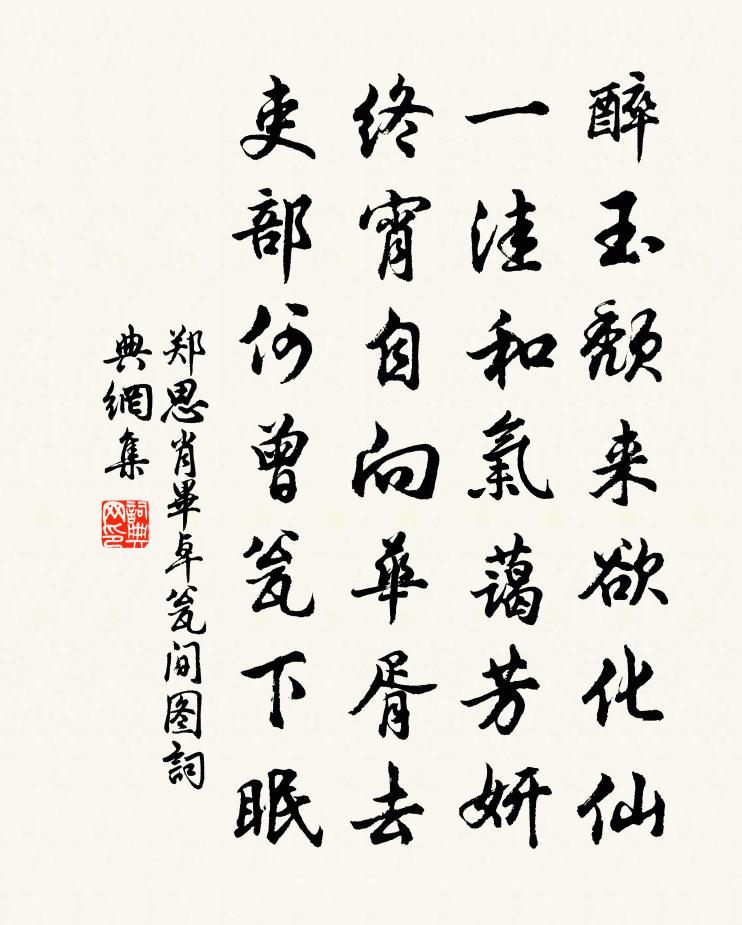 醉玉颓来欲化仙
一洼和氣蔼芳妍
终宵自向華胥去
吏部何曾瓮下眠
郑思肖畢卓瓮间图詞
典網集
詞典
网印